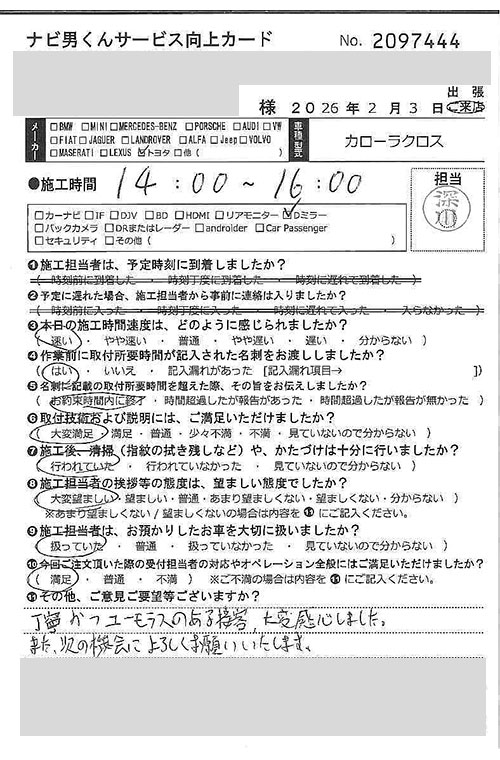 ナビ男くんサービス向上カード No. 2097444
出張
様 2026年2月3日 ご来店
メーカー □BMW □MINI □MERCEDES-BENZ □PORSCHE □AUDI □VW
□FIAT □JAGUER □LANDROVER □ALFA □Jeep □VOLVO
□MASERATI □LEXUS ☑トヨタ □他( )
車種型式 カローラクロス
●施工時間 14:00~16:00
担当
深川
□カーナビ □IF □DJV □BD □HDMI □リアモニター ☑Dミラー
□バックカメラ □DRまたはレーダー □androider □Car Passenger
□セキュリティ □その他( )
❶施工担当者は、予定時刻に到着しましたか?
( 時刻前に到着した ・ 時刻丁度に到着した ・ 時刻に遅れて到着した )
❷予定に遅れた場合、施工担当者から事前に連絡は入りましたか?
( 時刻前に入った ・ 時刻丁度に入った ・ 時刻に遅れて入った ・ 入らなかった )
❸本日の施工時間速度は、どのように感じられましたか?
( 速い ・ やや速い ・ 普通 ・ やや遅い ・ 遅い ・ 分からない )
❹作業前に取付所要時間が記入された名刺をお渡ししましたか?
( はい ・ いいえ ・ 記入漏れがあった [記入漏れ項目→ ])
❺名刺に記載の取付所要時間を超えた際、その旨をお伝えしましたか?
( お約束時間内に終了 ・ 時間超過したが報告があった ・ 時間超過したが報告が無かった )
❻取付技術および説明には、ご満足いただけましたか?
( 大変満足 ・ 満足 ・ 普通 ・ 少々不満 ・ 不満 ・ 見ていないので分からない )
❼施工後、清掃(指紋の拭き残しなど)や、かたづけは十分に行いましたか?
( 行われていた ・ 行われていなかった ・ 見ていないので分からない )
❽施工担当者の挨拶等の態度は、望ましい態度でしたか?
( 大変望ましい ・ 望ましい ・ 普通 ・ あまり望ましくない ・ 望ましくない ・ 分からない )
※あまり望ましくない / 望ましくないの場合は内容を⓫にご記入ください。
❾施工担当者は、お預かりしたお車を大切に扱いましたか?
( 扱っていた ・ 普通 ・ 扱っていなかった ・ 見ていないので分からない )
❿今回ご注文頂いた際の受付担当者の対応やオペレーション全般にはご満足いただけましたか?
( 満足 ・ 普通 ・ 不満 ) ※ご不満の場合は内容を⓫にご記入ください。
⓫その他、ご意見ご要望等ございますか?
丁寧かつユーモラスのある接客、大変感心しました。
また、次の機会によろしくお願いいたします。